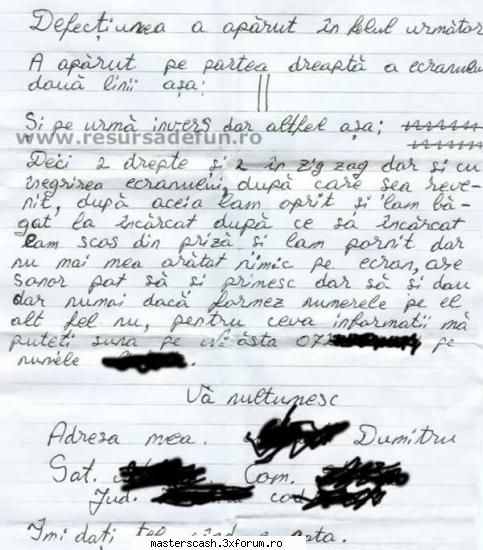 Defecțiunea a apărut în felul următor
A apărut pe partea dreaptă a ecranului
două linii așa: ||
Și pe urmă invers dar altfel așa;
www.resursadefun.ro
Deci 2 drepte și 2 în zig zag dar si cu
înegrirea ecranului, după care sea reve-
nit, după aceia lam oprit și lam bă-
gat la încărcat după ce să încărcat
lam scos din priză si lam pornit dar
nu mai mea arătat nimic pe ecran, are
sonor pot să si primesc dar să si dau
dar numai dacă formez numerele pe el
alt fel nu, pentru ceva informatii mă
puteti suna pe ästa 072 pe
numele .
Vă multumesc
Adresa mea. Dumitru
Sat. Com.
Jud. cod
Imi dați tel când e gata.
masterscash.3xforum.ro